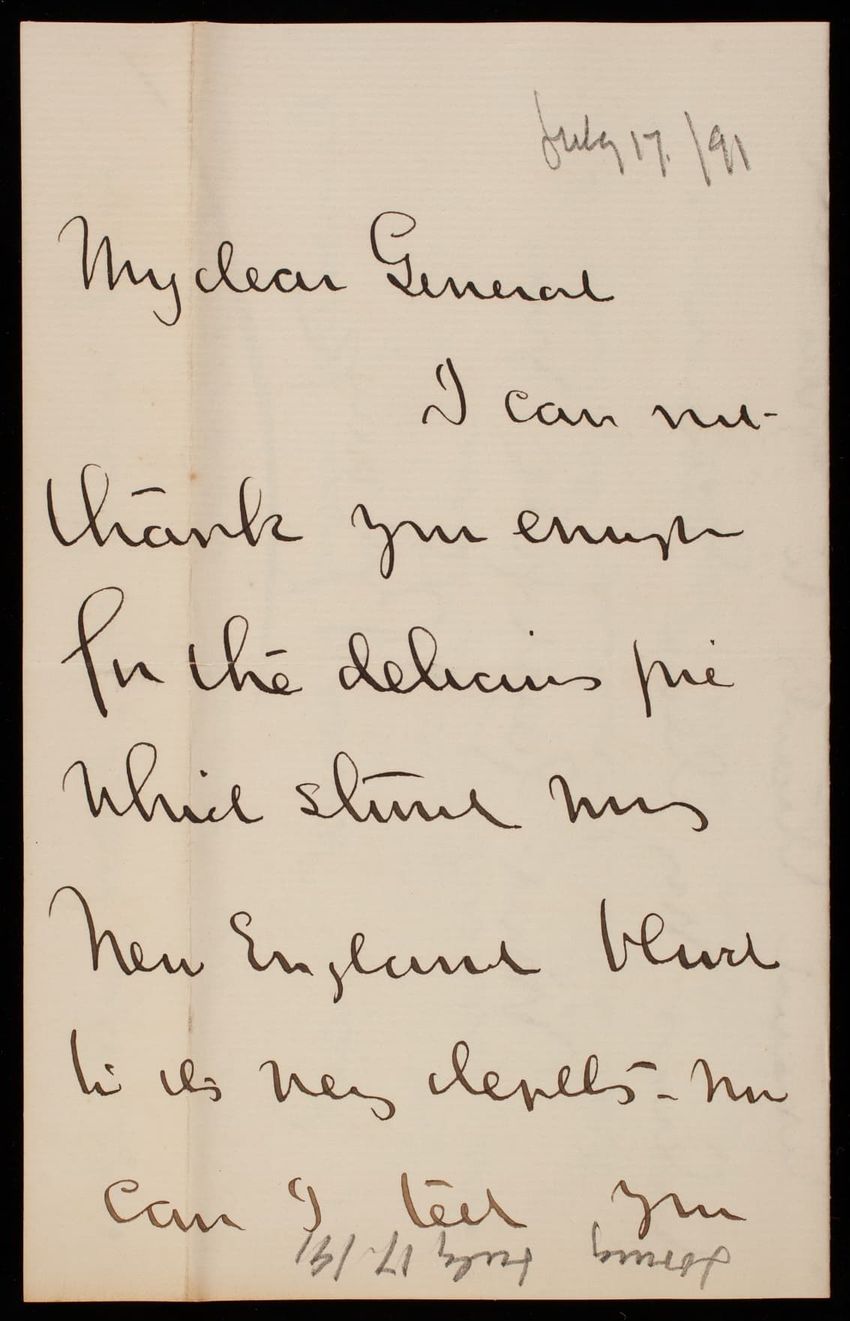 July 17. /91
My dear General
I can not
thank you enough
for the delicious pie
which stirred my
New England blood
to its very depths - nor
can I tell you
July 17. /91